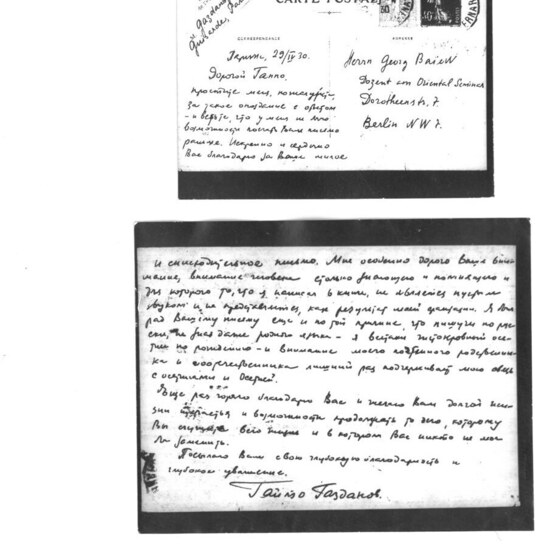 CARTE POSTALE
CORRESPONDANCE
ADRESSE
Париж, 29/IV 30.
Дорогой Гаппо,
простите меня, пожалуйста,
за такое опоздание с ответом
- и верьте, что у меня не было
возможности послать Вам письмо
раньше. Искренно и сердечно
Вас благодарю за Ваше милое
Herrn Georg Baiew
Dozent am Oriental Seminar
Dorotheenstr. 7
Berlin NW 7.
и снисходительное письмо. Мне особенно дорого Ваше вни-
мание, внимание человека столько знающего и понимающего и
для которого то, что я написал в книге, не является пустым
звуком и не представляется, как результат моей фантазии. Я был
рад Вашему письму еще и по той причине, что пишучи по рус-
ски, не зная даже родного языка - я остаюсь чистокровным осе-
тином по рождению - и внимание моего
и соотечественника лишний раз подчеркивает мою связь
с осетинами и Осетией.
Еще раз горячо благодарю Вас и желаю Вам долгой
и возможности продолжать то дело, которому
Вы всего и в котором Вас никто не мог
бы заменить.
Посылаю Вам свою глубокую благодарность и
глубокое уважение.
Гайто Газданов.